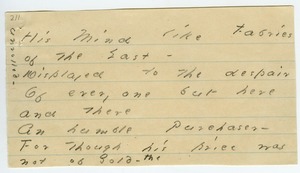 His Mind like Fabrics
of the East -
Displayed to the despair
Of every one but here
and there
An humble Purchaser -
For though his price was
not of Gold - the